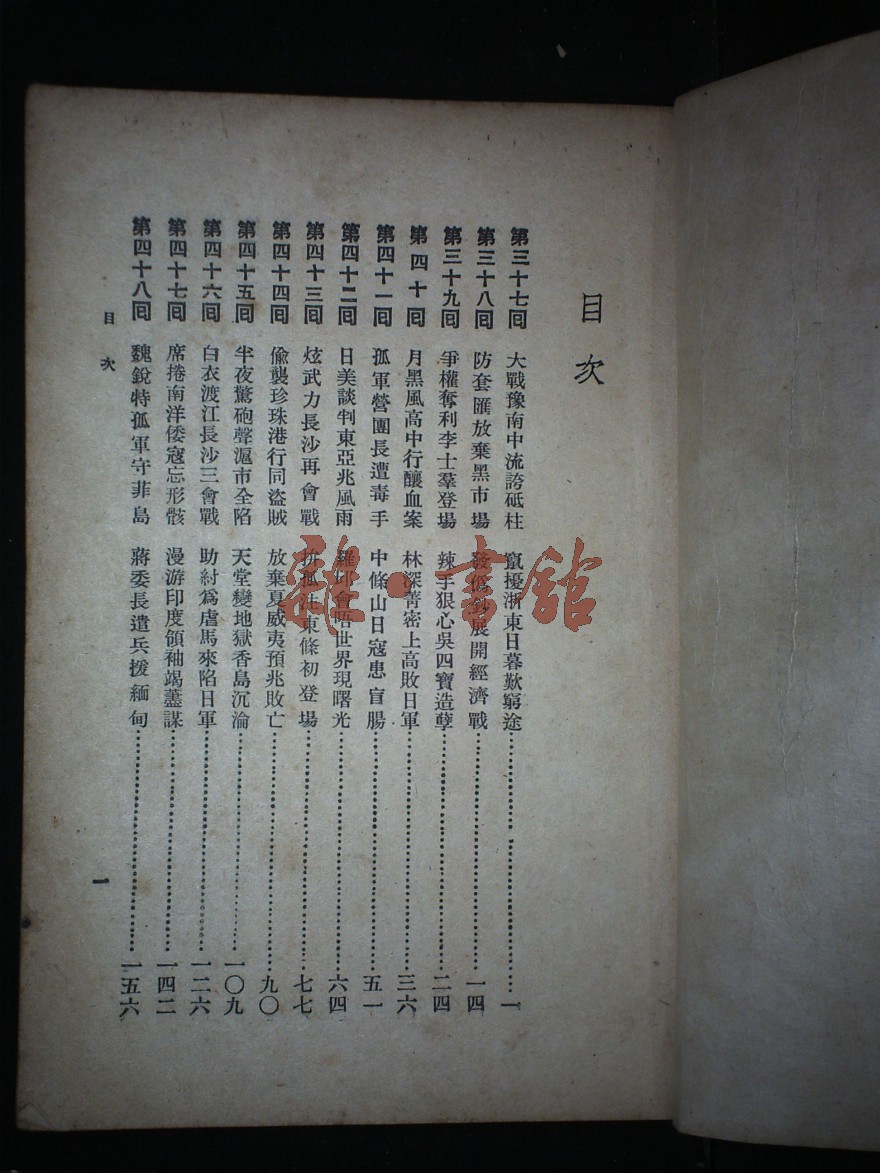 目次
第三十七囘 大戰豫南中流誇砥柱 竄擾浙東日暮歎窮途 一
第三十八囘 防套匯放棄黑市場 發僞鈔展開經濟戰 一四
第三十九囘 爭權奪利李士羣登場 辣手狠心吳四寶造孽 二四
第四十囘 月黑風高中行釀血案 林深菁密上高敗日軍 三六
第四十一囘 孤軍營團長遭毒手 中條山日寇患盲腸 五一
第四十二囘 日美談判東亞兆風雨 羅邱會晤世界現曙光 六四
第四十三囘 炫武力長沙再會戰 拚孤注東條初登場 七七
第四十四囘 偸襲珍珠港行同盜賊 放棄夏威夷預兆敗亡 九〇
第四十五囘 半夜驚砲聲滬市全陷 天堂變地獄香島沉淪 一〇九
第四十六囘 白衣渡江長沙三會戰 助紂爲虐馬來陷日軍 一二六
第四十七囘 席捲南洋倭寇忘形骸 漫游印度領袖竭藎謀 一四二
第四十八囘 魏銳特孤軍守菲島 蔣委長遣兵援緬甸 一五六
目次
一
雜·書館